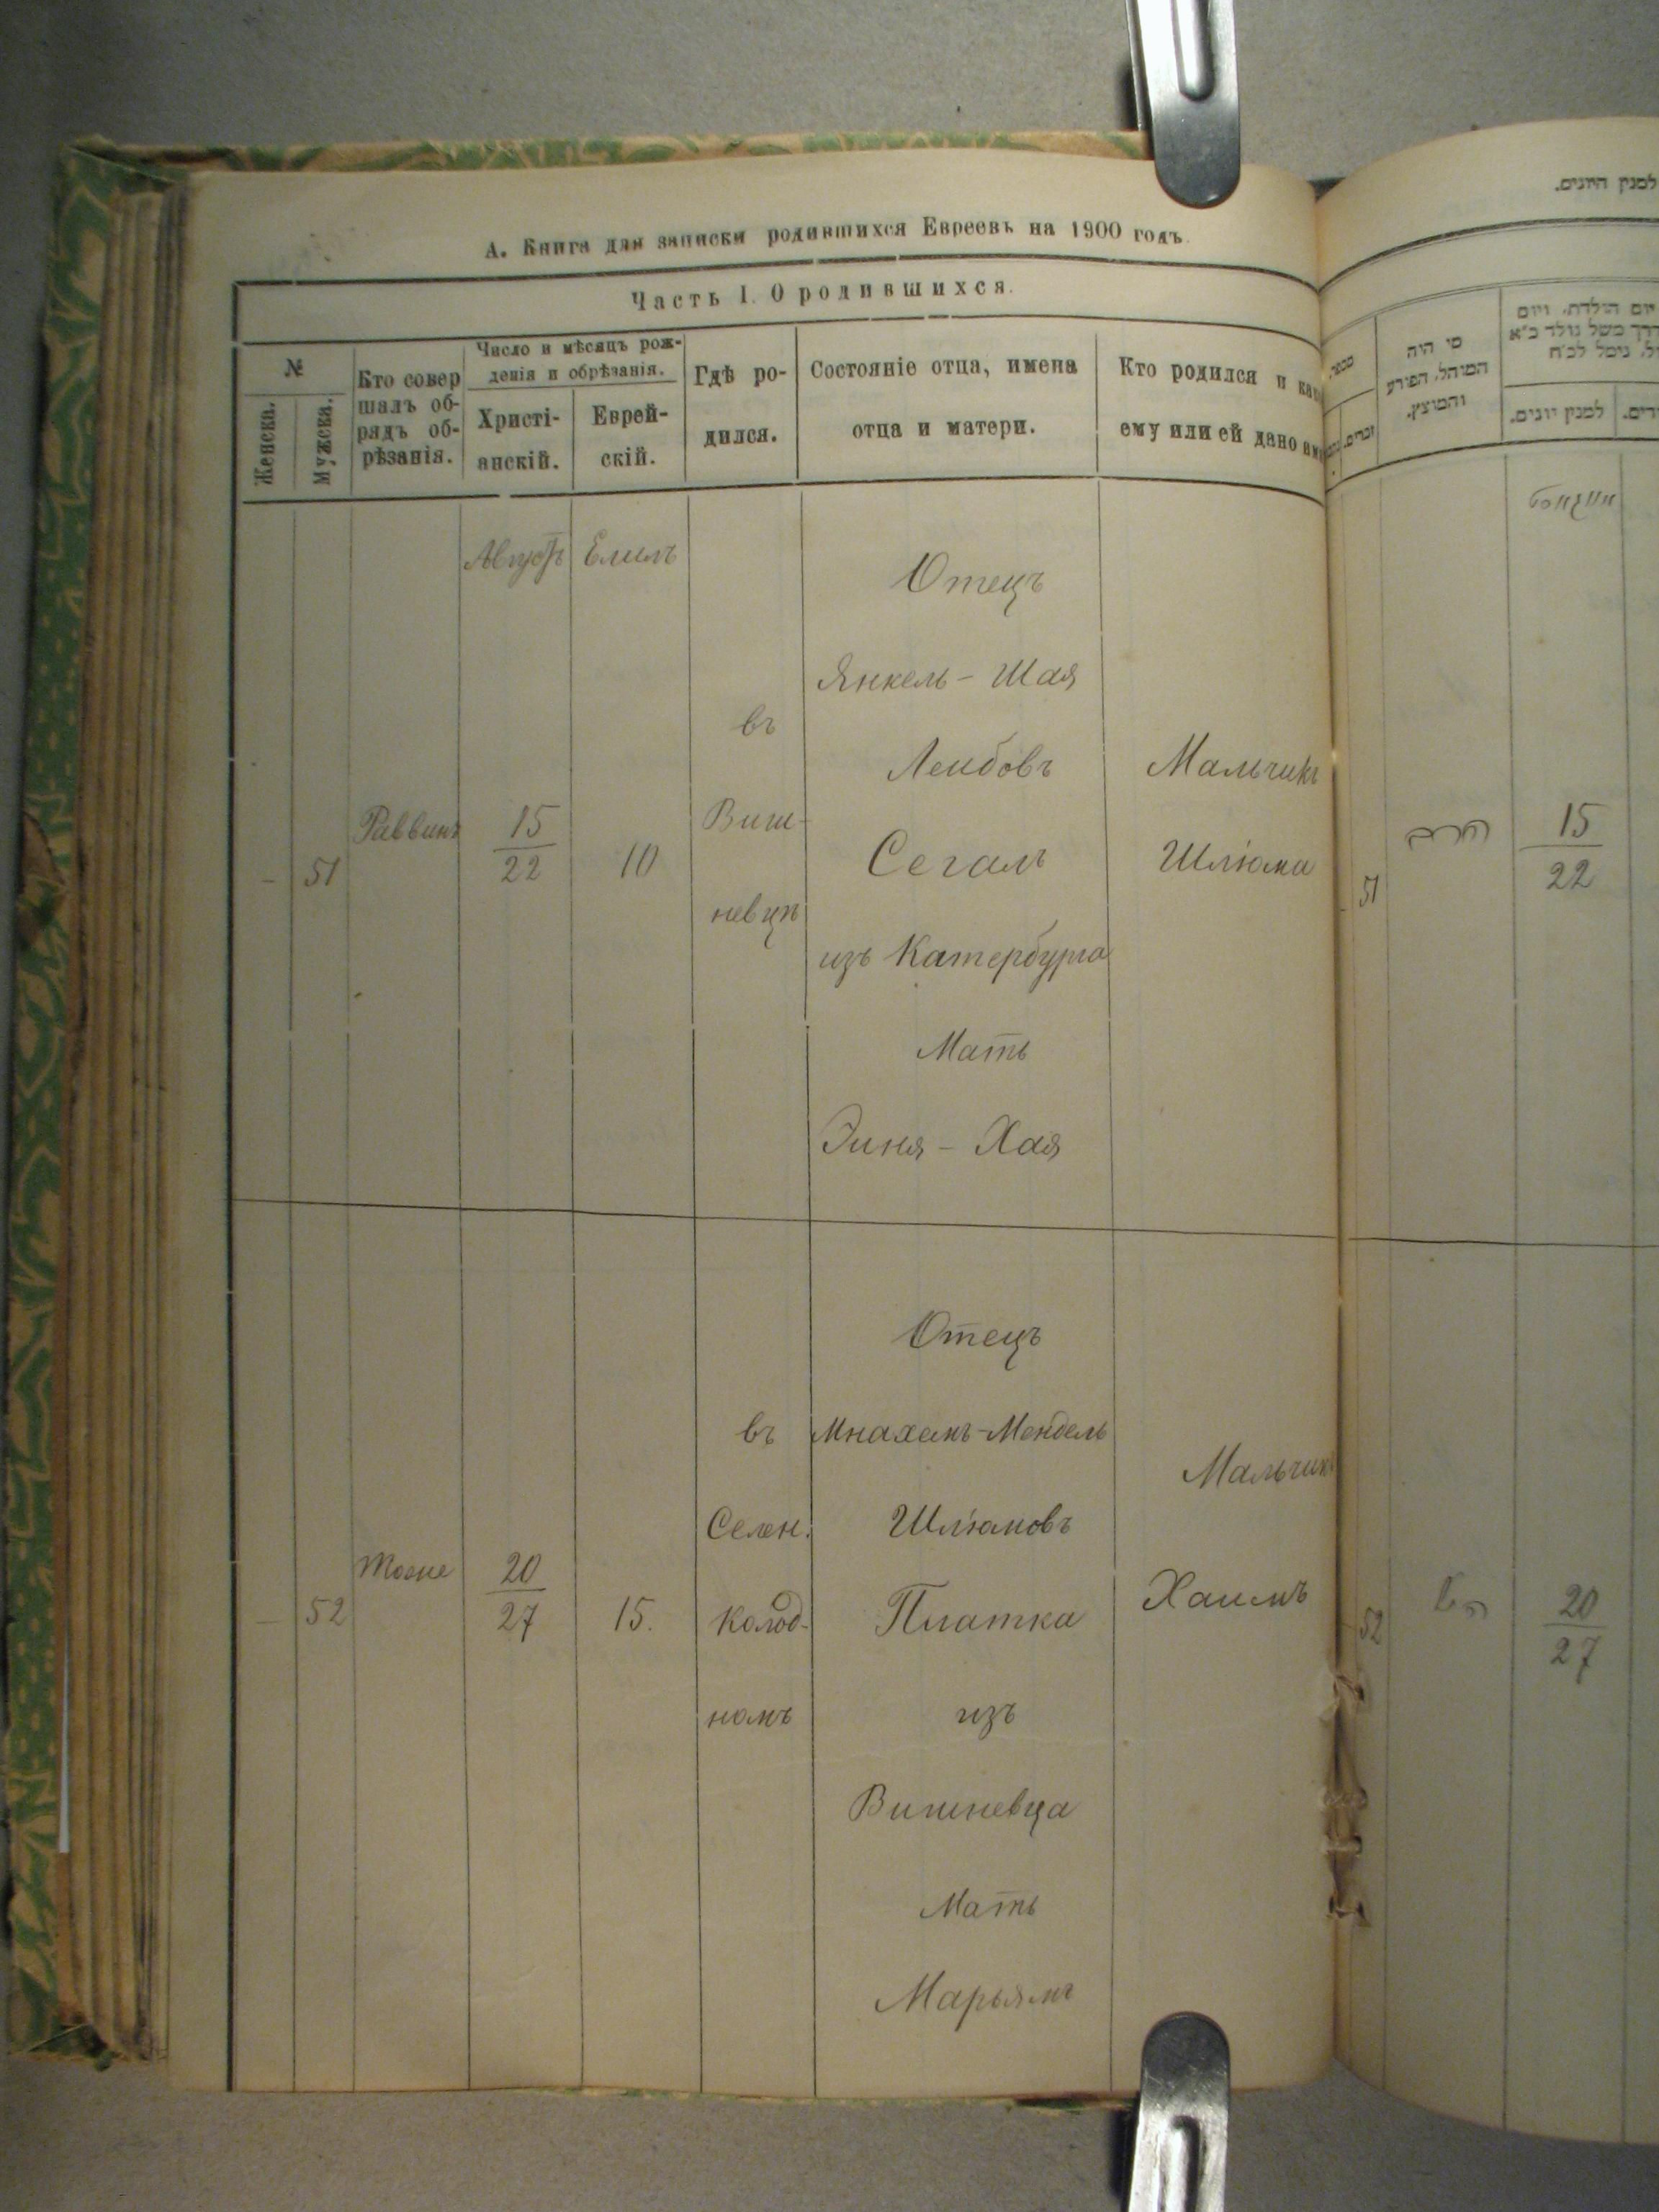 А. Книга для записки родившихся Евреевъ на 1900 годъ.
Часть I. О родившихся.
№
Женска.
Мужска.
Кто совер
шалъ об-
рядъ об-
рѣзанія.
Число и мѣсяцъ рож-
денія и обрѣзанія.
Христі-
анскій.
Еврей-
скій.
Гдѣ ро-
дился.
Состояніе отца, имена
отца и матери.
Кто родился и как
ему или ей дано им
Августъ
Елилъ
–
51
Раввинъ
15
22
10
въ
Виш-
невцѣ
Отецъ
Янкель - Шая
Лейбовъ
Сегаль
изъ Катербурга
Мать
Эиня - Хая
Мальчикъ
Шліома
–
52
Тоже
20
27
15.
въ
Селен.
Колод-
номъ
Отецъ
Мнахемъ-Мендель
Шліомовъ
Платка
изъ
Вишневца
Мать
Марьямъ
Мальчик
Хаимъ
למנין היונים.
מי היה
המוהל, הפורע
והמוצץ.
יום הולדת, ויום
למנין יונים.
זכרים.
אויגוסט
51
הרב
15
22
52
הנ״ל
20
27